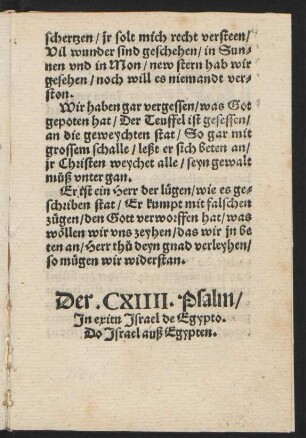 schertzen/ jr solt mich recht versteen/
Vil wunder sind geschehen/ in Sun-
nen vnd in Mon/ new stern hab wir
gesehen/ noch will es niemandt ver-
ston.
Wir haben gar vergessen/ was Got
gepoten hat/ Der Teuffel ist gesessen/
an die geweychten stat/ So gar mit
grossem schalle/ leßt er sich beten an/
jr Christen weychet alle/ seyn gewalt
müß vnter gan.
Er ist ein Herr der lügen/ wie es ge-
schriben stat/ Er kumpt mit falschen
zügen/ den Gott verworffen hat/ was
wöllen wir vns zeyhen/ das wir jn be
ten an/ Herr thü deyn gnad verleyhen/
so mügen wir widerstan.
Der .CXIIII. Psalm/
In exitu Israel de Egypto.
Do Israel auß Egypten.